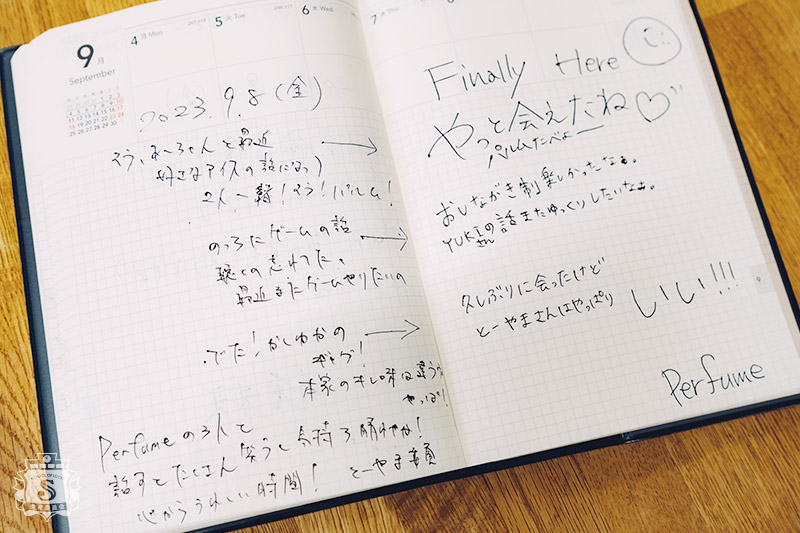 9月
September
4 月 Mon
5 火 Tue
6 水 Wed
7 木
2023.9.8(金)
そう、あ〜ちゃんと最近
好きなアイスの話になって
2人一緒!そう!パルム!
のっちにゲームの話
聴くの忘れてた。
最近またゲームやりたいの
でた!かしゆかの
ギャグ!
本家のキレ味は違うな
やっぱ!
Perfumeの3人と
話すとたくさん笑うし気持ち晴れやか!
心からうれしい時間! とーやま委員
Finally Here
やっと会えたね♡
パルムたべよー
おしながき制楽しかったなぁ。
YUKIさんの話またゆっくりしたいなぁ。
久しぶりに会ったけど
とーやまさんはやっぱり
いい!!!
Perfume
S